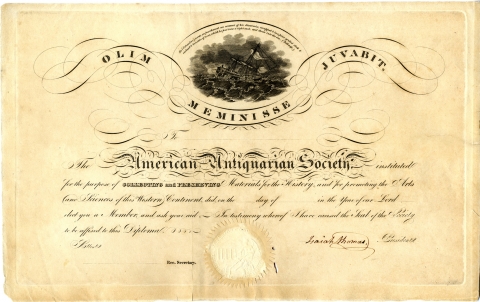 OLIM MEMINISSE JUVABIT.
To
The American Antiquarian Society, instituted
for the purpose of COLLECTING and PRESERVING Materials for the History, and for promoting the Arts
and Sciences of the Western Continent, did, on the day of in the Year of our Lord
elect you a Member, and ask your aid. In testimony whereof I have caused the Seal of the Society
to be affixed to this Diploma.
Attest
Isaiah Thomas, President
Rec. Secretary.